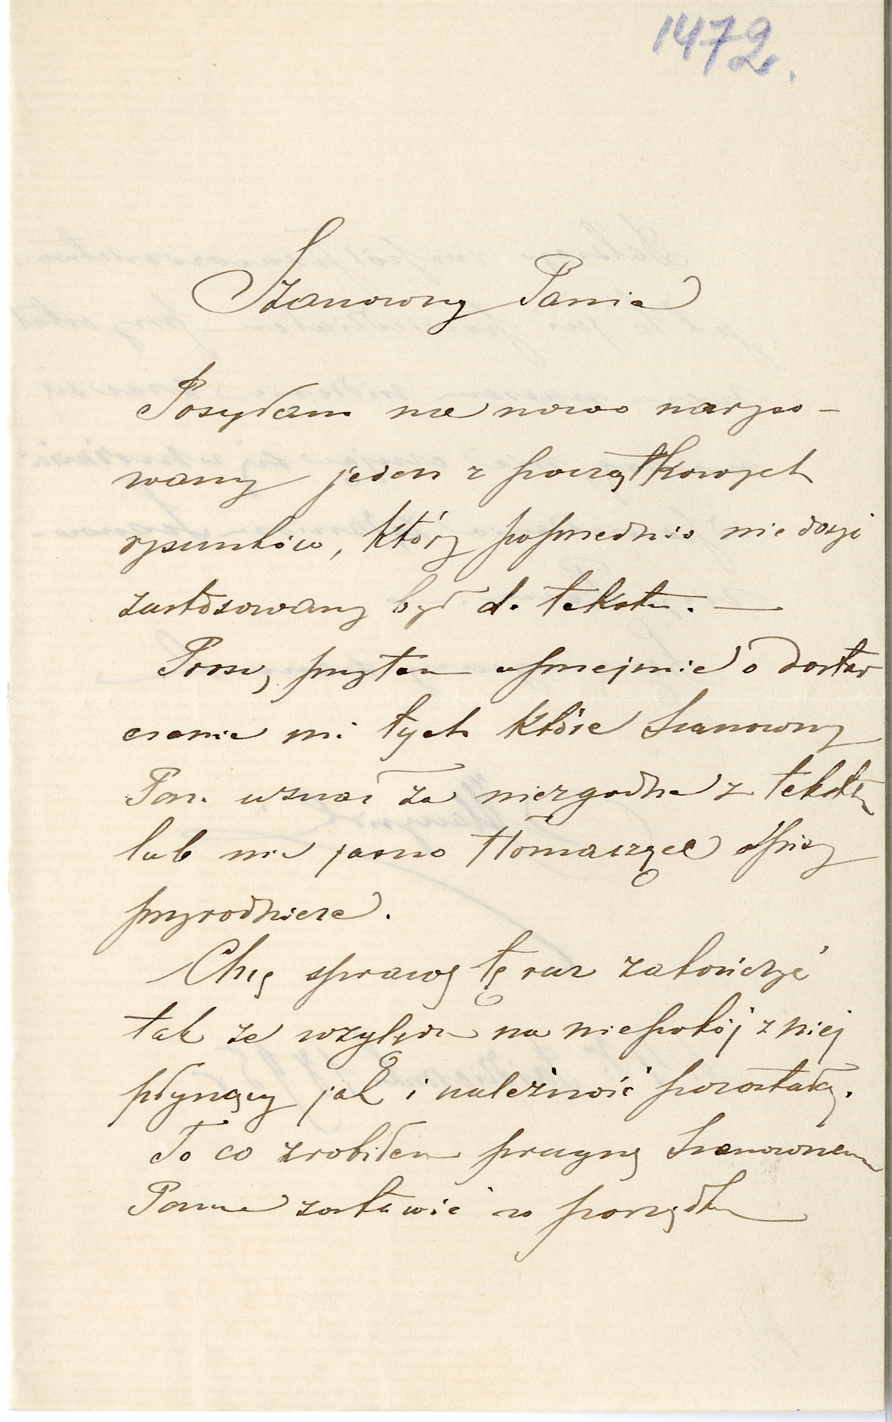 1472.
Szanowny Panie
Posyłam na nowo naryso-
wany jeden z początkowych
rysunków, który poprzednio nie dosyć
zastosowany był do tekstu. —
Proszę przytem uprzejmie o dostar
czenie mi tych które Szanowny
Pan uznał za niezgodne z tekstem
lub nie jasno tłomaczące opisy
przyrodnicze.
Chcę sprawę tę raz zakończyć
tak ze względu na niepokój z niej
płynący jak i należność pozostałą.
To co zrobiłem pragnę Szanownemu
Panu zostawić w porządku